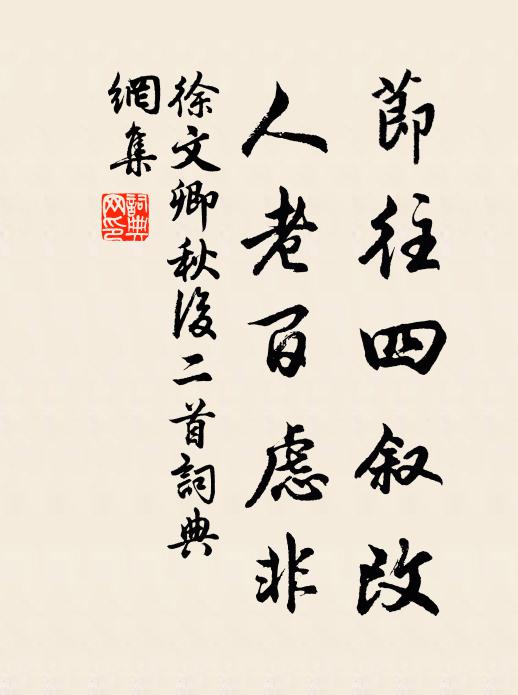 節往四叙改
人老百慮非
徐文卿秋後二首詞典
網集
詞典
网印